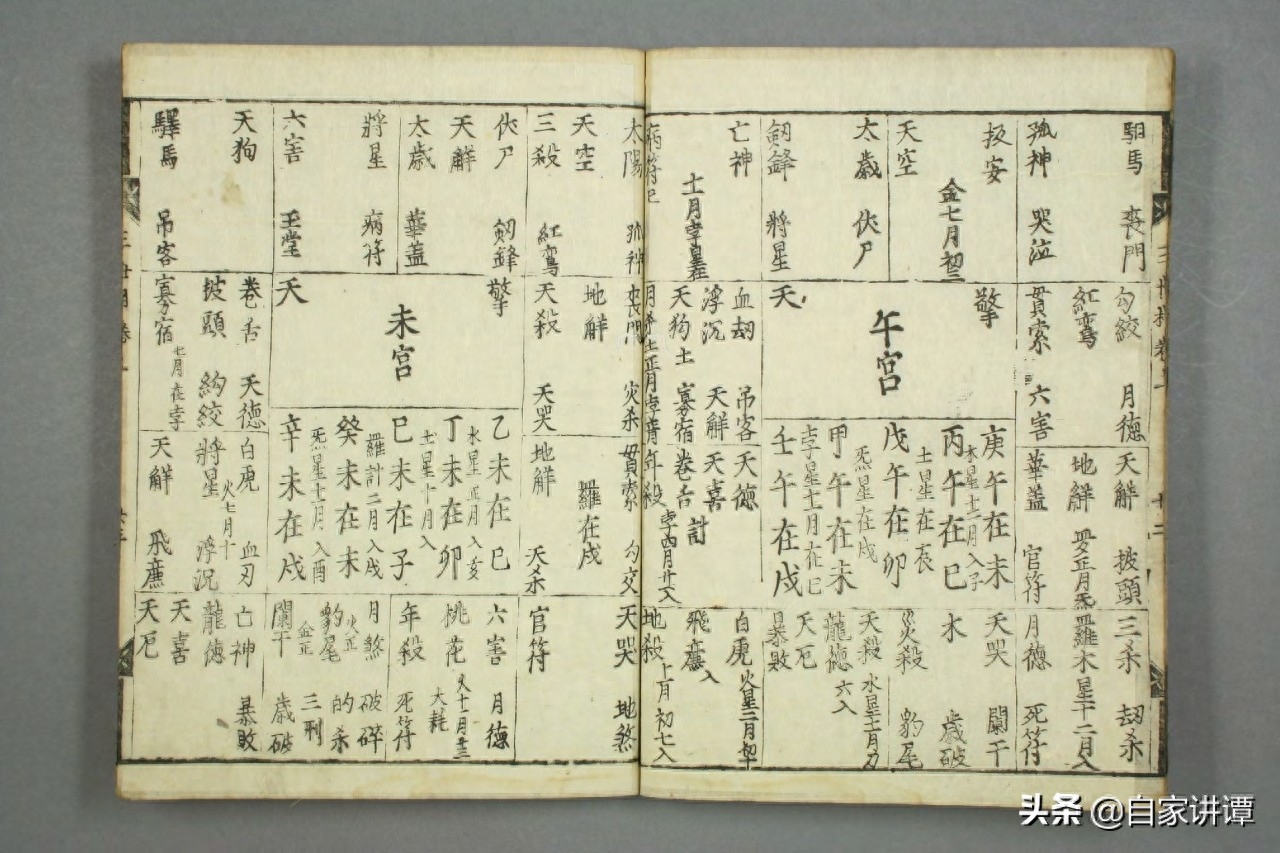 馹馬 喪門
孤神 哭泣
扳安
金七月初三
天空
太歲 伏尸
劍鋒 將星
亡神
十一月孛星在
病符
勾絞 月德
紅鸞
貫索 六害
擎
午宮
天
血刼 吊客
浮沉 天解
天狗 土 寡宿
天解 披頭
地觧
華盖 官符
庚午在未
水星十二月入子
丙午在巳
土星在亥
戊午在卯
炁星在戌
甲午在未
孛星十二月在巳
壬午在戌
天德
天喜 計
卷舌
孛四月廿八入
三杀 刼杀
羅木星十二月入
月德 死符
天哭 闌干
水 歲破
災殺 豹尾
天殺 水星十二月
龍德 六入
天厄
暴敗
白虎 火星二月初十
飛廉入
地殺 上月初七入
太陽 孤神
天空
三殺 紅鸞
伏尸 劍鋒
天觧
太歲 華盖
將星 病符
六害 玉堂
天狗
驛馬 吊客
喪門 災杀
地觧
天殺 天哭
擎
未宮
天
卷舌 天德
披頭 絢絞
寡宿 七月在孛
貫索 勾交
羅在戌
地觧 天杀
乙未在巳
水星正月入亥
丁未在卯
土星十月入
巳未在子
羅計二月入戌
癸未在未
炁星十一月入酉
辛未在戌
白虎 血刃
火七月十
將星 浮沉
天觧 飛廉
天哭 地煞
官符
六害 月德
火十二月廿三
桃花 大耗
年殺 死符
月煞 破碎
火正
豹尾 的杀
金正 三刑
闌干 歲破
亡神 暴敗
龍德
天喜
天厄
头条 @自家讲谭